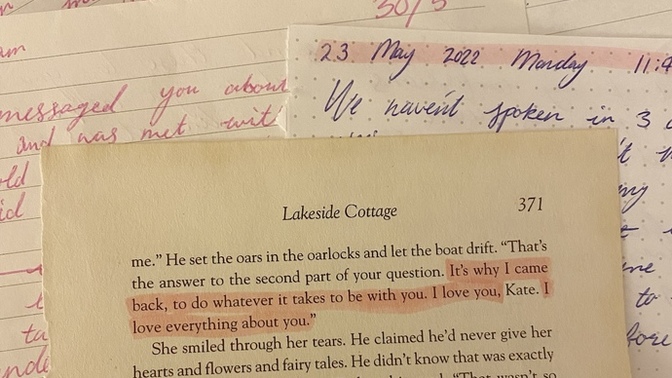 30/5
am
messaged you about
and was met with
old
23 May 2022 Monday 11:4
We haven't spoken in 3
Lakeside Cottage 371
me.” He set the oars in the oarlocks and let the boat drift. “That’s
the answer to the second part of your question. It’s why I came
back, to do whatever it takes to be with you. I love you, Kate. I
love everything about you.”
She smiled through her tears. He claimed he’d never give her
hearts and flowers and fairy tales. He didn’t know that was exactly